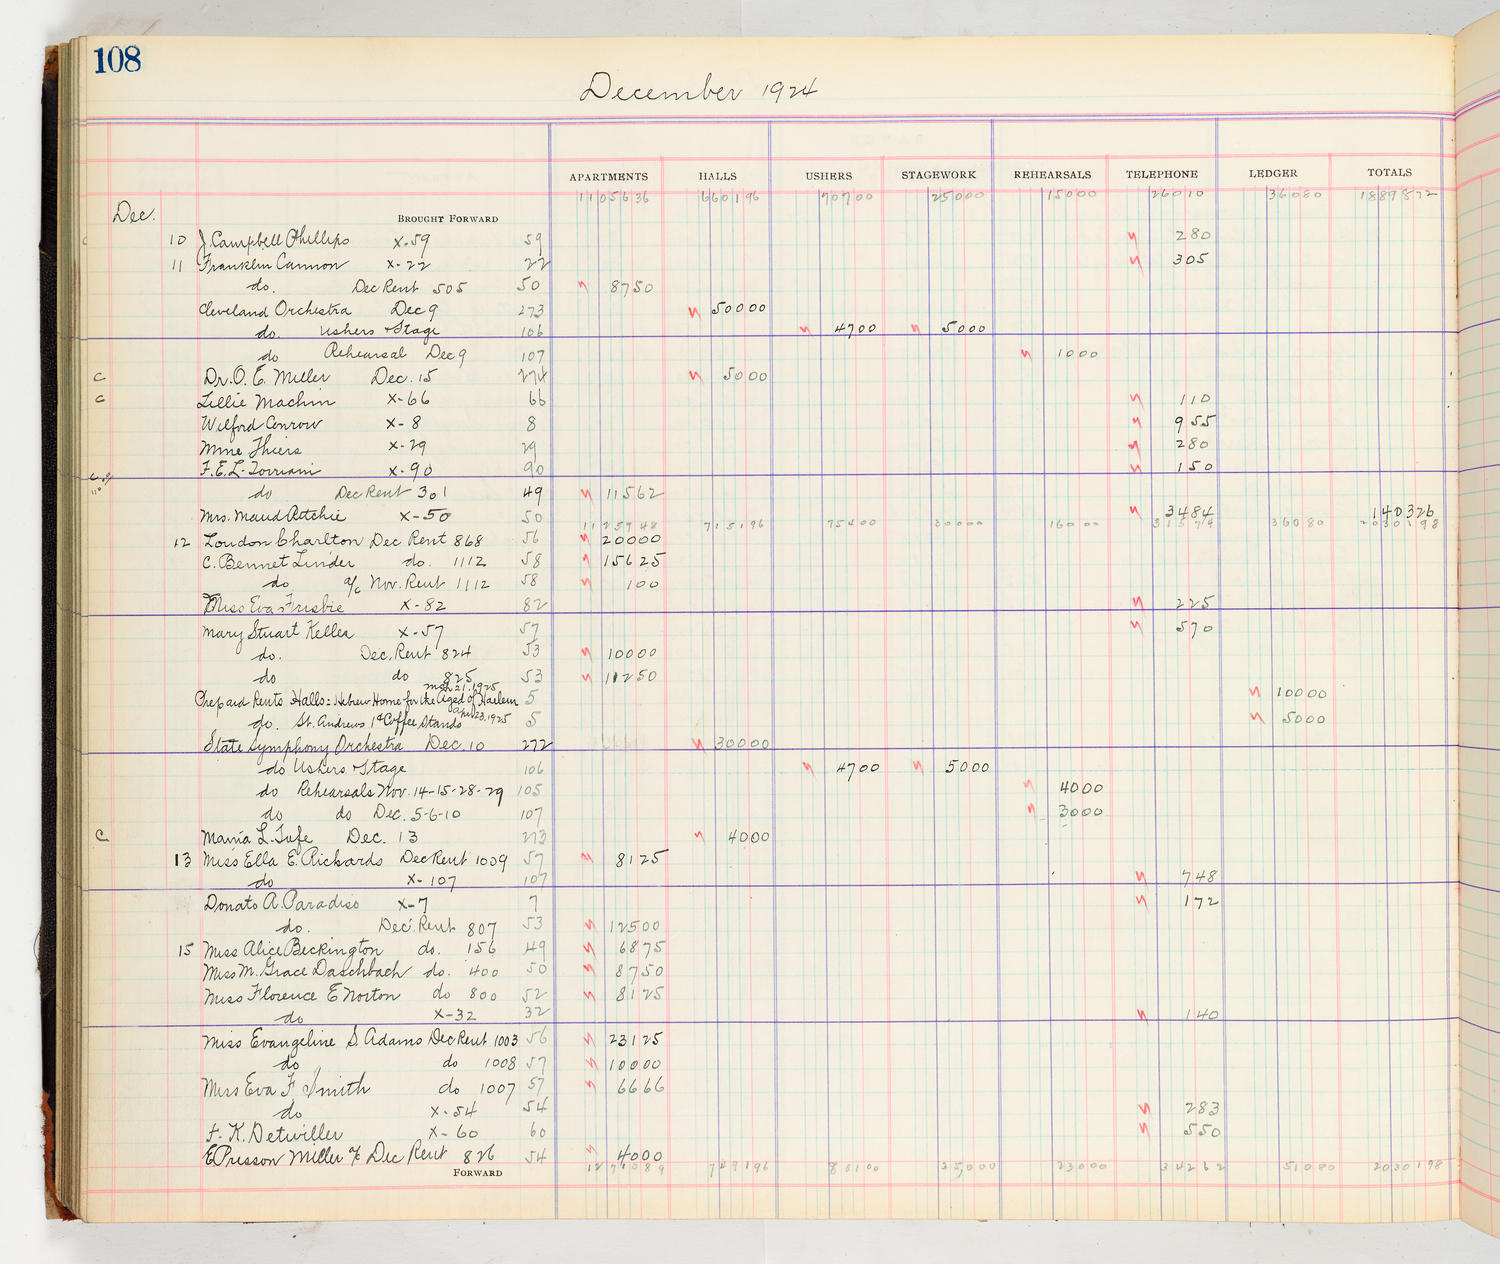 108
December 1924
APARTMENTS HALLS USHERS STAGEWORK REHEARSALS TELEPHONE LEDGER TOTALS
1105636 660196 70700 25000 15000 26010 36080 1889872
Dec.
BROUGHT FORWARD
10 J. Campbell Phillips X-59 59 280
11 Franklin Cannon X-22 22 305
do. Dec Rent 505 50 8750
Cleveland Orchestra Dec 9 273 50000
do. Ushers + Stage 106 4700 5000
do Rehearsal Dec 9 107 1000
c Dr. O. E. Miller Dec. 15 274 5000
c Lillie Machin X-66 66 110
Wilford Conrow X-8 8 955
Mme Thiers X-29 29 280
F. E. L. Torriani X-90 90 150
do Dec Rent 301 49 11562
Mrs. Maud Ritchie X-50 50 3484 140326
1125948 715196 75400 30000 16000 31574 36080 2030198
12 Loudon Charlton Dec Rent 868 56 20000
C. Bennet Linder do. 1112 58 15625
do a/c Nov. Rent 1112 58 100
Miss Eva Frisbie X-82 82 225
Mary Stuart Kelles X-57 57 570
do. Dec. Rent 824 53 10000
do do 825 53 11250
Mch 21, 1925
Prepaid Rents Halls: Hebrew Home for the Aged of Harlem 5 10000
Apr 23, 1925
do. St. Andrews 1¢ Coffee Stands 5 5000
State Symphony Orchestra Dec. 10 272 30000
do Ushers + Stage 106 4700 5000
do Rehearsals Nov. 14-15-28-29 105 4000
do do Dec. 5-6-10 107 3000
c Maria L. Tufe Dec. 13 273 4000
13 Miss Ella E. Rickards Dec Rent 1009 57 8125
do X-107 107 748
Donato A. Paradiso X-7 7 172
do. Dec. Rent 807 53 12500
15 Miss Alice Beckington do. 156 49 6875
Miss M. Grace Daschbach do. 400 50 8750
Miss Florence E Norton do 800 52 8125
do X-32 32 140
Miss Evangeline S. Adams Dec Rent 1003 56 23125
do do 1008 57 10000
Miss Eva F Smith do 1007 57 6666
do X-54 54 283
F. K. Detwiller X-60 60 550
E Presson Miller a/c Dec Rent 826 54 4000
FORWARD 1271089 749196 80100 35000 23000 34262 51080